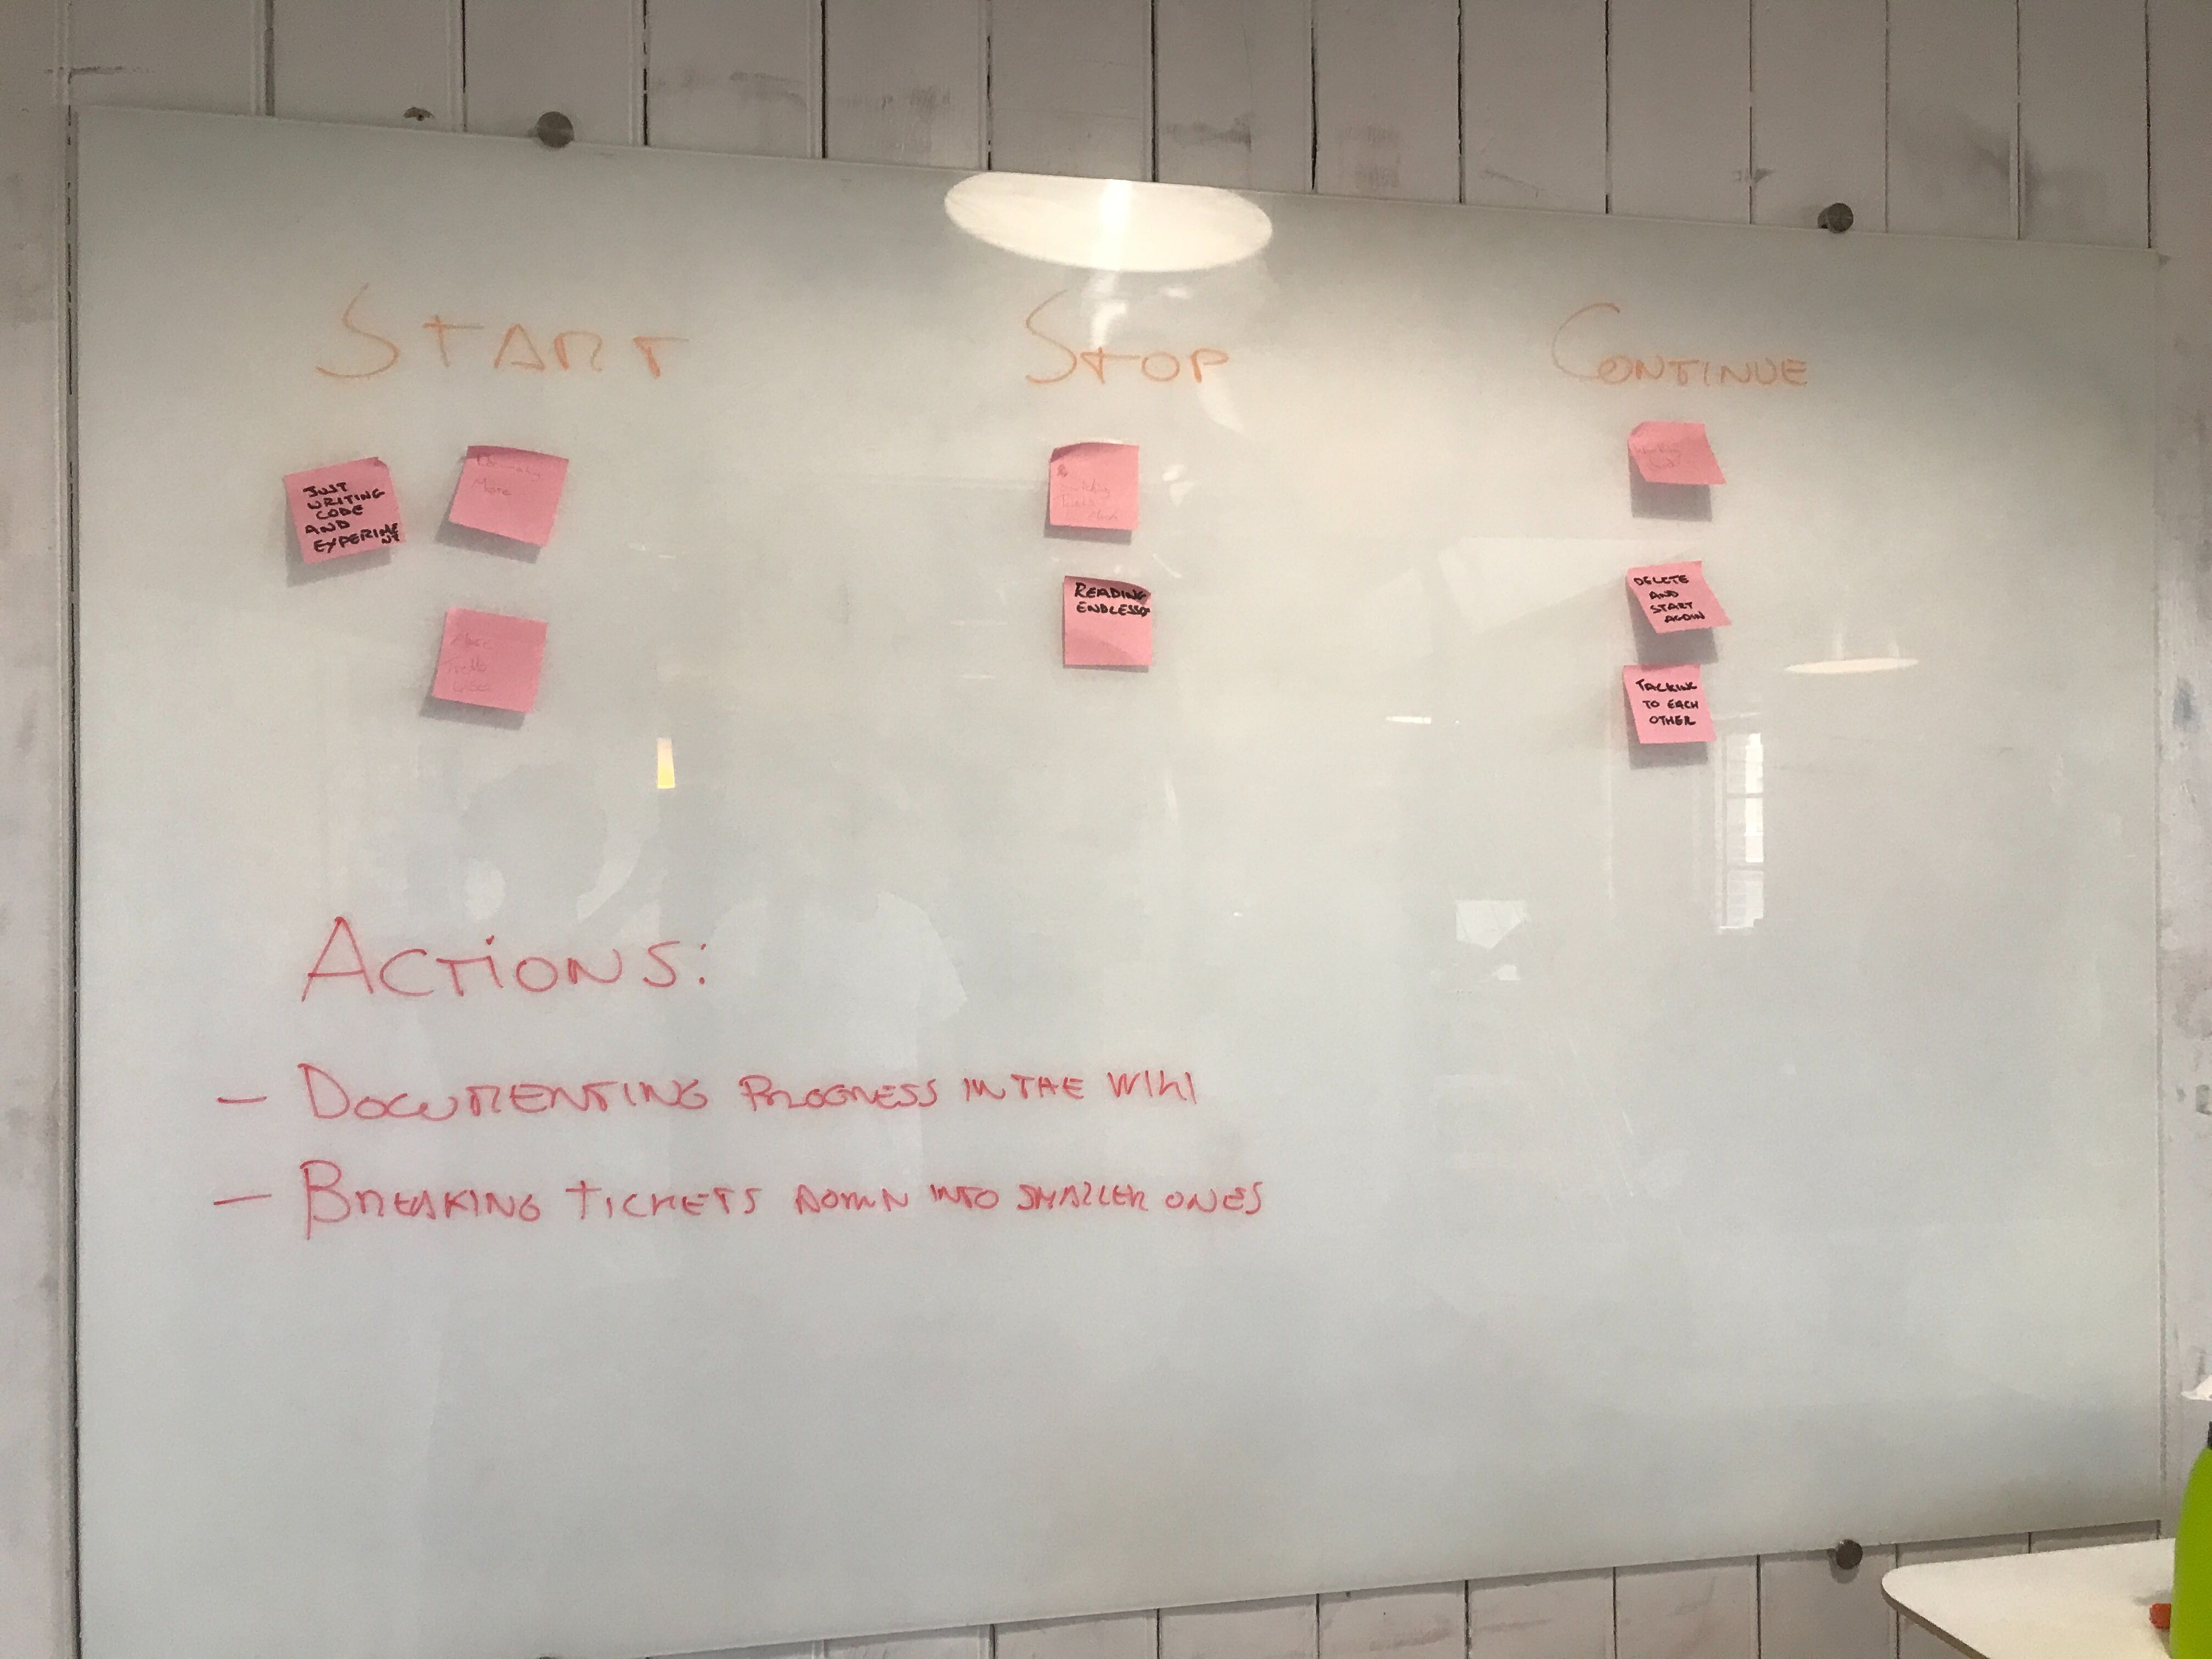 START
STOP
CONTINUE
JUST
WRITING
CODE
AND
EXPERIME
NT
More
READING
ENDLESSO
DELETE
AND
START
AGAIN
TALKING
TO EACH
OTHER
ACTIONS:
- DOCUMENTING PROGRESS IN THE WIKI
- BREAKING TICKETS DOWN INTO SMALLER ONES